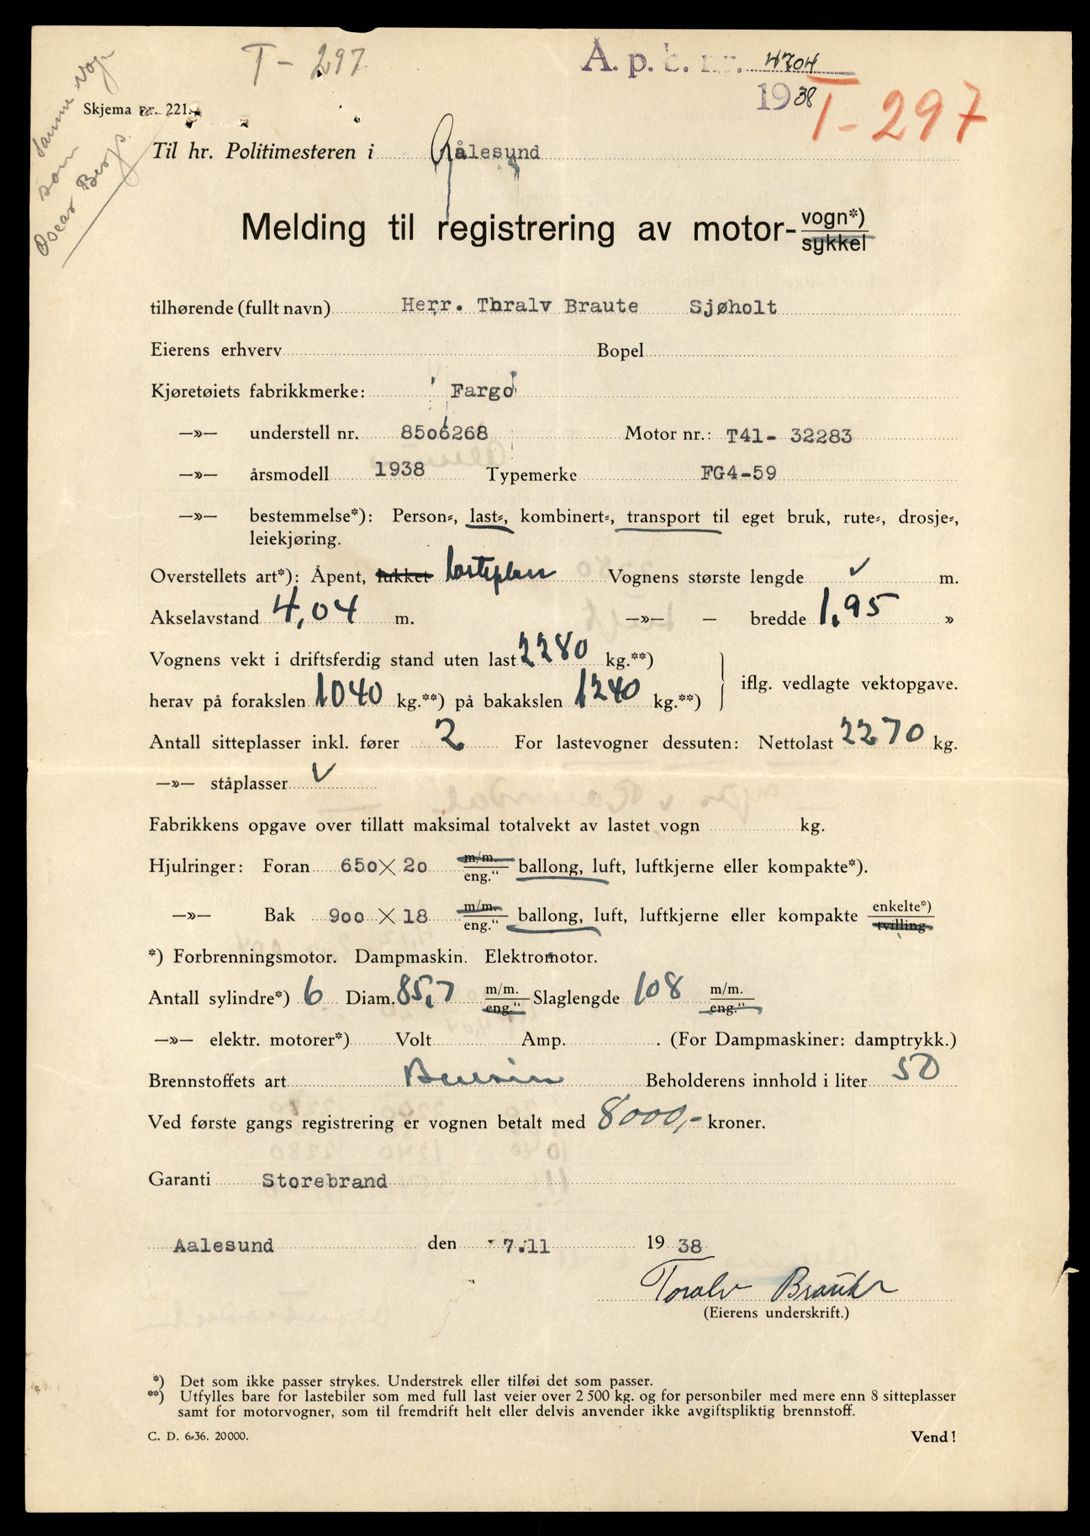 T - 297
Å. p. b. nr. 4704
1938
T - 297
Samme Vogn
som
Oscar Berg
Skjema nr. 221.
Til hr. Politimesteren i Aalesund
Melding til registrering av motor- vogn*) sykkel
tilhørende (fullt navn) Herr. Thralv Braute Sjøholt
Eierens erhverv Bopel
Kjøretøiets fabrikkmerke: Fargo
—»— understell nr. 8506268 Motor nr.: T41- 32283
—»— årsmodell 1938 Typemerke FG4-59
—»— bestemmelse*): Person-, last-, kombinert-, transport til eget bruk, rute-, drosje-,
leiekjøring.
Overstellets art*): Åpent, lukket lasteplan Vognens største lengde ✓ m.
Akselavstand 4,04 m. —»— — bredde 1,95 »
Vognens vekt i driftsferdig stand uten last 2280 kg.**)
herav på forakslen 1040 kg.**) på bakakslen 1240 kg.**) iflg. vedlagte vektopgave.
Antall sitteplasser inkl. fører 2 For lastevogner dessuten: Nettolast 2270 kg.
—»— ståplasser ✓
Fabrikkens opgave over tillatt maksimal totalvekt av lastet vogn kg.
Hjulringer: Foran 650 X 20 m/m. eng." ballong, luft, luftkjerne eller kompakte*).
—»— Bak 900 X 18 m/m. eng." ballong, luft, luftkjerne eller kompakte enkelte*) tvilling
*) Forbrenningsmotor. Dampmaskin. Elektromotor.
Antall sylindre*) 6 Diam. 85,7 m/m. eng." Slaglengde 108 m/m. eng."
—»— elektr. motorer*) Volt Amp. . (For Dampmaskiner: damptrykk.)
Brennstoffets art Bensin Beholderens innhold i liter 50
Ved første gangs registrering er vognen betalt med 8000,- kroner.
Garanti Storebrand
Aalesund den 7.11 1938
Toralv Braute
(Eierens underskrift.)
*) Det som ikke passer strykes. Understrek eller tilføi det som passer.
**) Utfylles bare for lastebiler som med full last veier over 2 500 kg. og for personbiler med mere enn 8 sitteplasser
samt for motorvogner, som til fremdrift helt eller delvis anvender ikke avgiftspliktig brennstoff.
C. D. 6-36. 20000.
Vend!